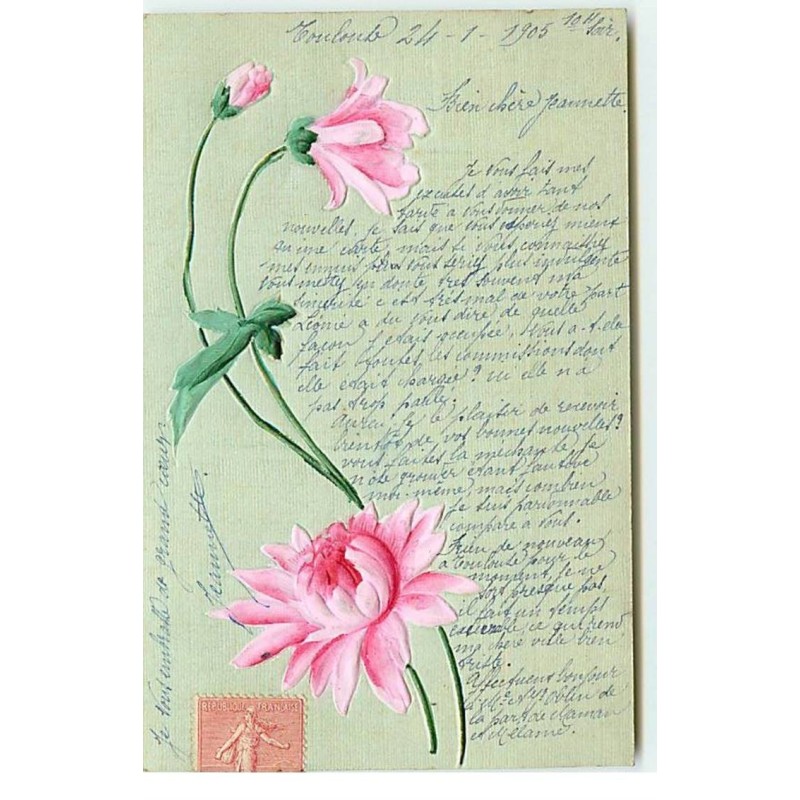 Toulouse 24-1-1905 10H Soir.
Bien chère Jeannette
Je vous fais mes
excuses d'avoir tant
tardé a vous donner de nos
nouvelles, je sais que vous reposez mieux
qu'une carte, mais si vous connaissiez
mes ennuis vous seriez plus indulgente
vous mettez en doute très souvent ma
sincerité c'est très mal de votre part
Léonie a du vous dire de quelle
façon j'étais occupée. Vous a-t-elle
fait toutes les commissions dont
elle était chargée? ou elle n'a
pas trop parlé.
Aurai je le plaisir de recevoir
bientôt de vos bonnes nouvelles?
vous faites la mechante je
n'ose gronder étant fautive
moi-même, mais combien
je suis pardonnable
comparé a vous.
Rien de nouveau
a Toulouse pour le
moment, je ne
sort presque pas
il fait un temps
ce qui rend
ma chère ville bien
triste.
Affectueux bonjour
à Me &
la part de Maman
et Mélanie.
Je vous embrasse de grand cœur
Jeannette.
REPUBLIQUE FRANÇAISE